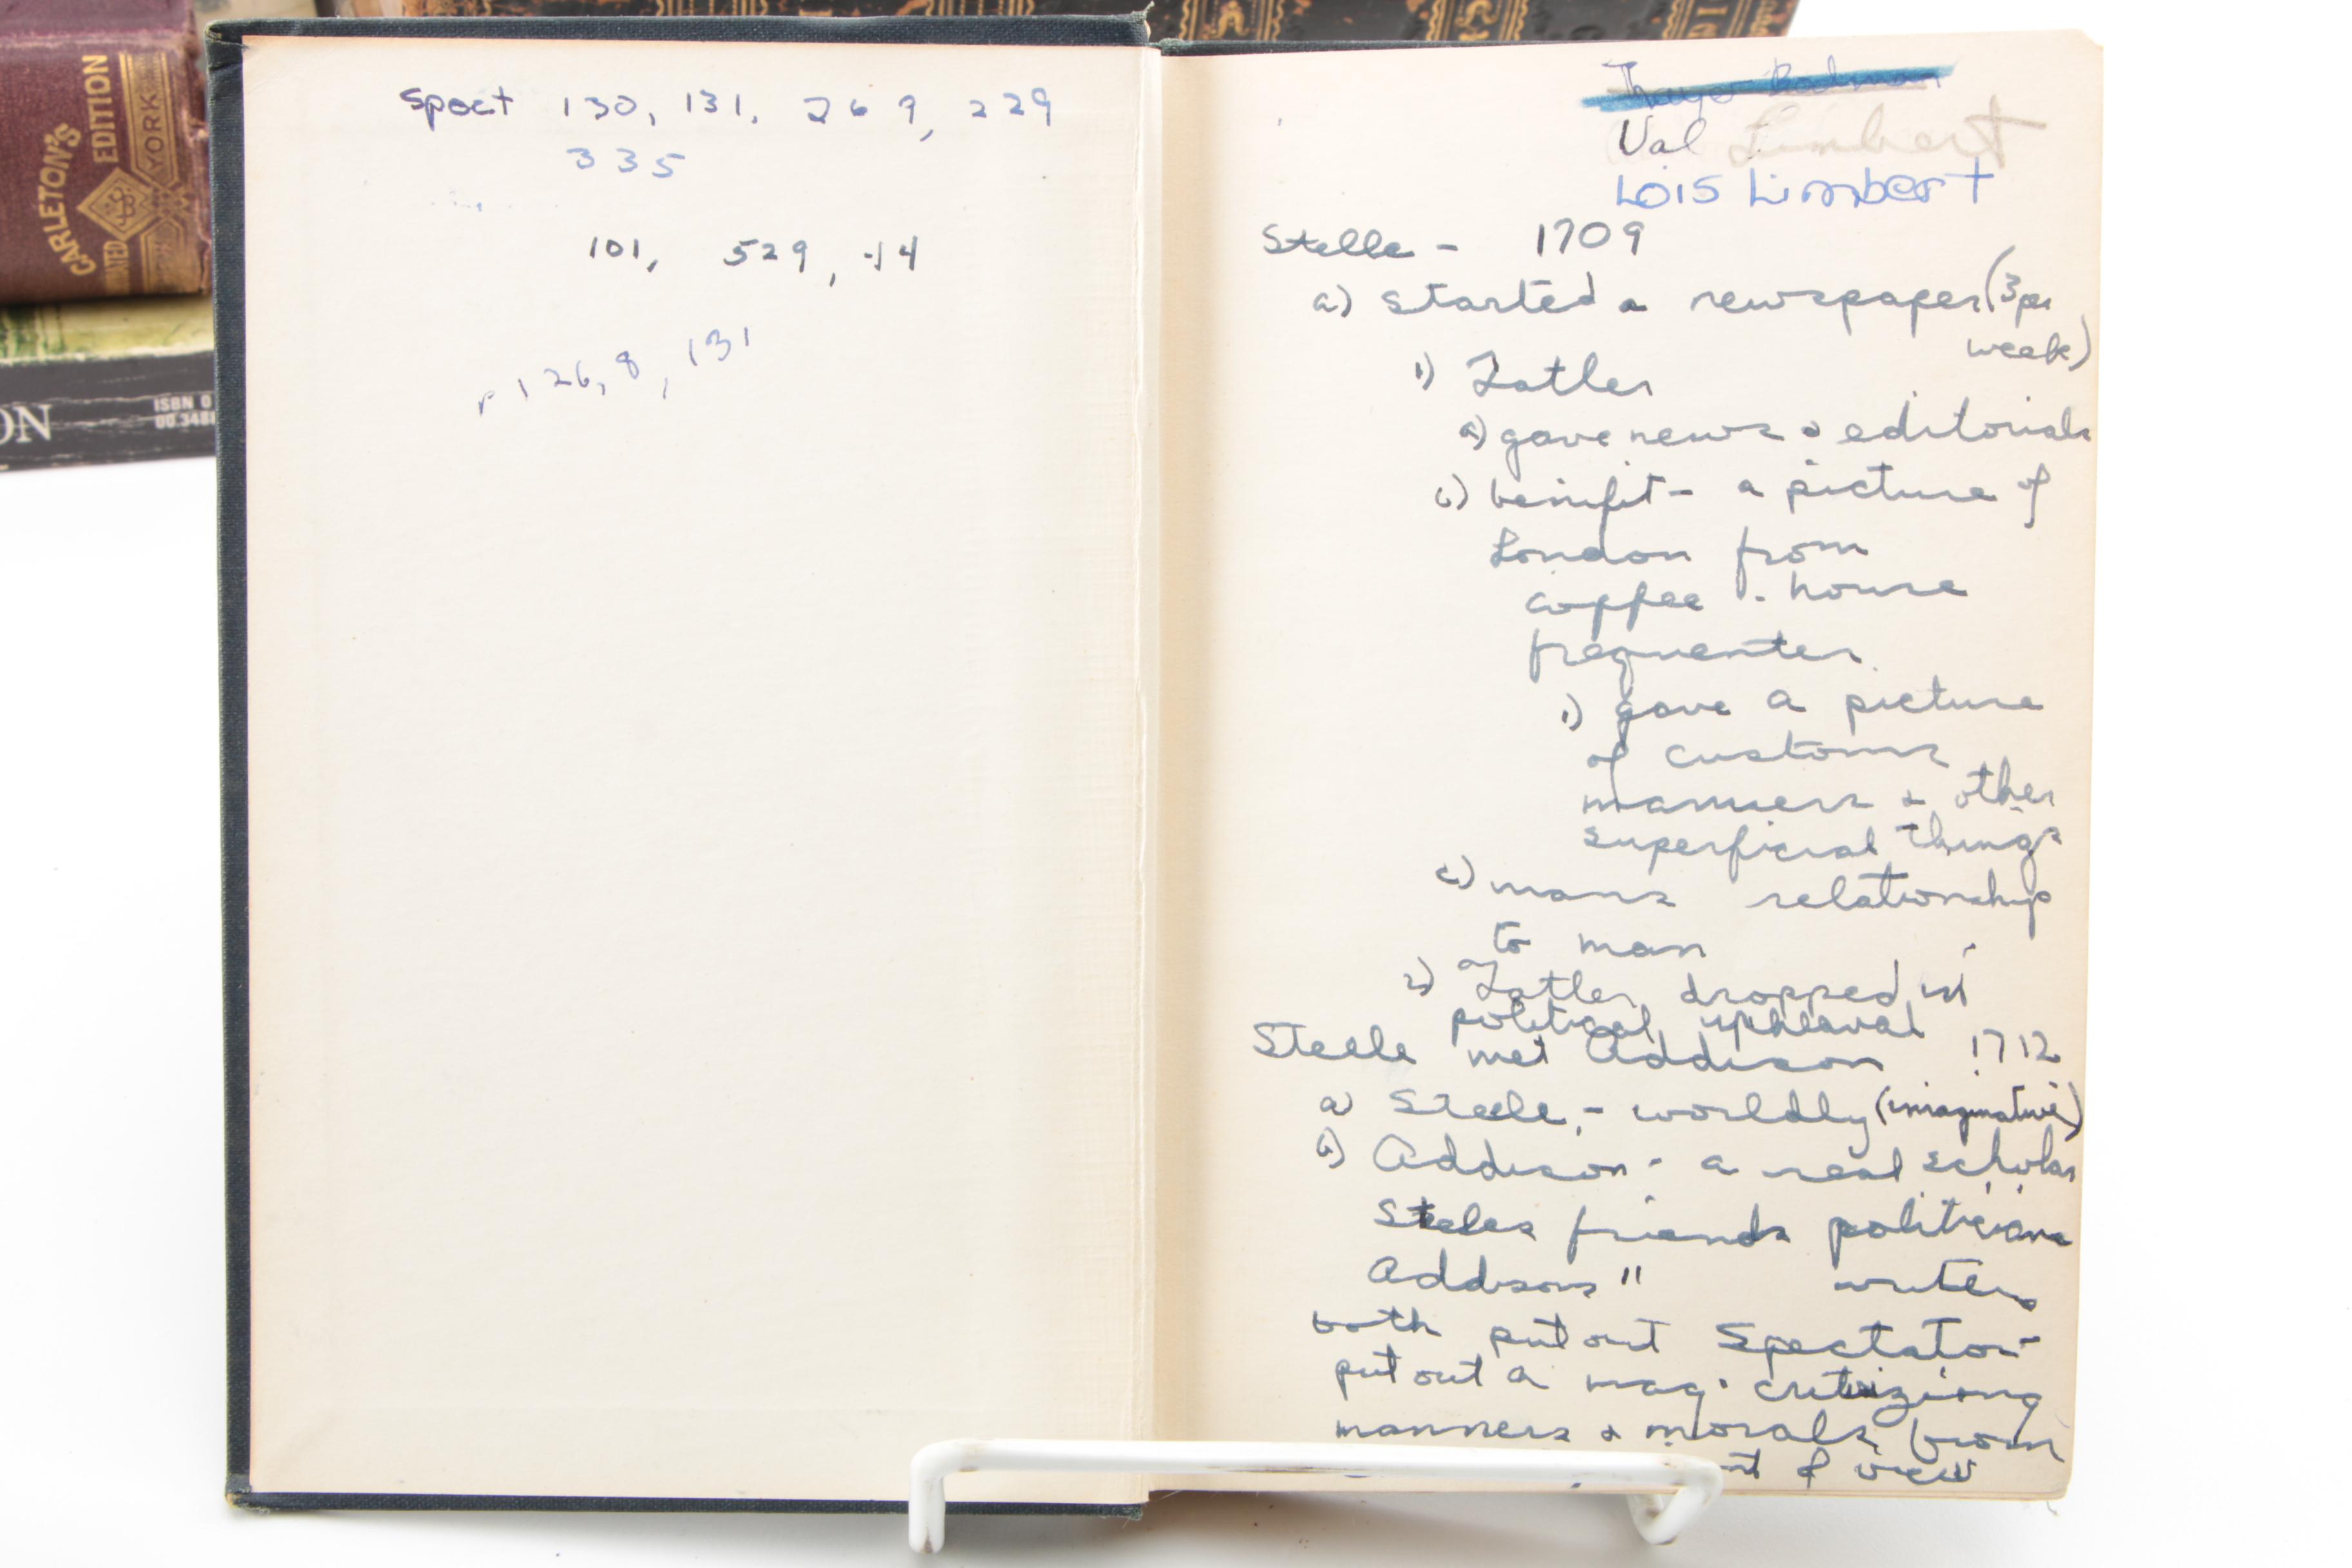 CARLETON'S
EDITION
YORK
ON
ISBN 0
Spect 130, 131, 269, 229
335
101, 529, 14
p 126, 8, 131
Val Limbert
Lois Limbert
Stelle - 1709
a) started a newspaper (3 per
week)
1) Tatler
a) gave news & editorials
b) benifit - a picture of
London from
coffee - house
frequenter
1) gave a picture
of customs
manners & other
superficial things
c) mans relationship
to man
2) Tatler dropped in
political upheaval
Steele met Addison 1712
a) Steele - worldly (imaginative)
b) Addison - a real scholar
Steeles friends politicians
Addisons " writers
both put out Spectator -
put out a mag. critizing
manners & morals from
of view